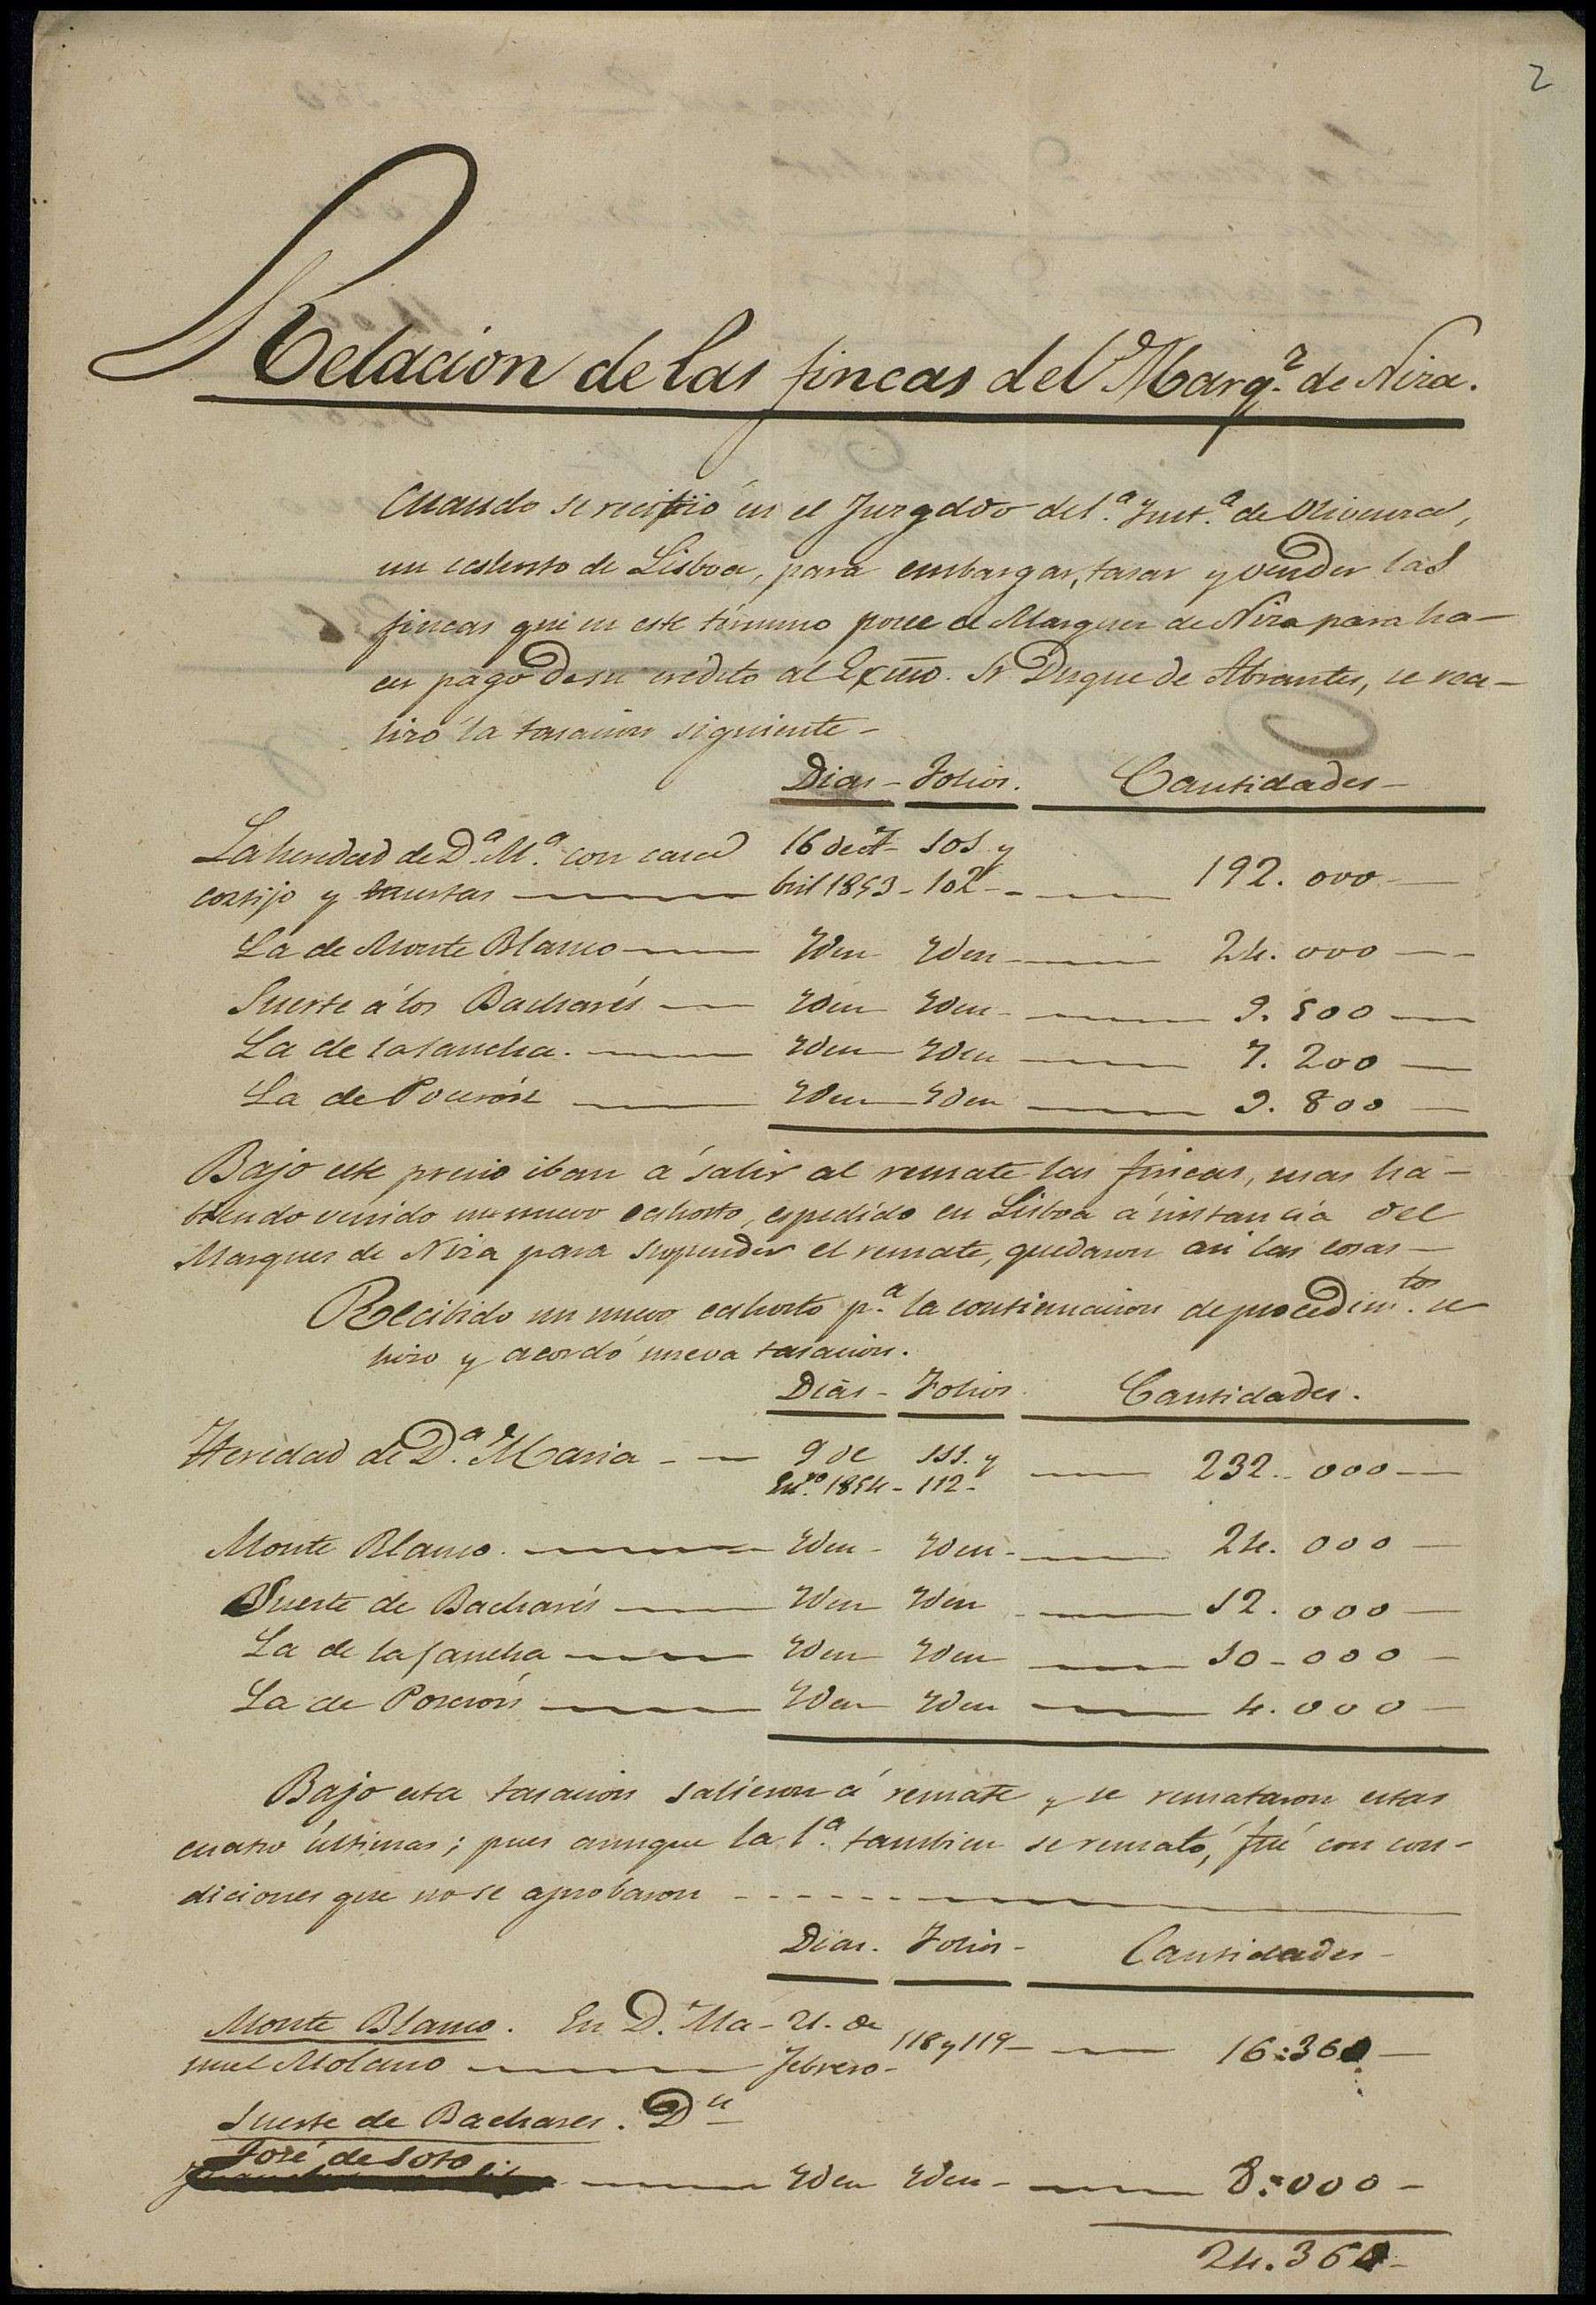 2
Relacion de las fincas del Marq.ˢ de Niza.
Cuando se recibió en el Juzgado de 1.ª Inst.ª de Olivenza,
un exhorto de Lisboa, para embargar, tasar y vender las
fincas que en este término posee el Marques de Niza para ha-
cer pago de su crédito al Excmo. Sr Duque de Abrantes, se rea-
lizó la tasacion siguiente-
Dias - Folios. Cantidades-
La heredad de D.ª M.ª con casa 16 de A- 101 y
cortijo y huertas bril 1853 - 102 - 192.000
La de Monte Blanco Iden Iden 24.000
Suerte á los Bacharés Iden Iden 9.500
La de la Sancha. Iden Iden 7.200
La de Iden Iden 9.800
Bajo este precio iban á salir al remate las fincas, mas ha-
biendo venido un nuevo exhorto, espedido en Lisboa á instancia del
Marques de Niza para suspender el remate, quedaron asi las cosas-
Recibido un nuevo exhorto p.ª la continuacion de procedim.tos se
hizo y acordó nueva tasacion.
Dias - Folios Cantidades.
Heredad de D.ª Maria 9 de 111. y
En.º 1854 - 112 - 232.000
Monte Blanco. Iden - Iden - 24.000
Suerte de Bacharés Iden Iden 12.000
La de la Sancha Iden Iden 10-000
La de Iden Iden 4.000
Bajo esta tasacion salieron á remate y se remataron estas
cuatro últimas; pues aunque la 1.ª tambien se remató, fué con con-
diciones que no se aprobaron
Dias. Folios- Cantidades-
Monte Blanco. En D. Ma- 21. de
nuel Molano febrero- 118 y 119 - 16:360
Suerte de Bachares. Dⁿ
José de Soto Iden Iden - 8:000-
24.360-